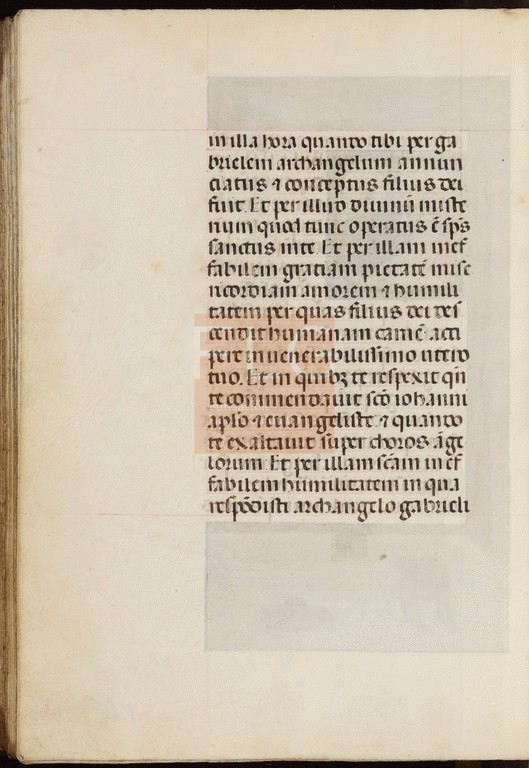 in illa hora quando tibi per ga
brielem archangelum annun
ciatus ⁊ conceptus filius dei
fuit. Et per illud diuinū miste
rium quod tunc operatus ē sp̄s
sanctus in te. Et per illam inef
fabilem gratiam pietatē mise
ricordiam amorem ⁊ humili
tatem per quas filius dei des
cendit humanam carnē acci
pere in uenerabilissimo utero
tuo. Et in quibꝫ te respexit qn̄
te commendauit sc̄o iohanni
apl̄o ⁊ euangeliste ⁊ quando
te exaltauit super choros āge
lorum Et per illam sc̄am inef
fabilem humilitatem in qua
respōdisti archangelo gabrieli